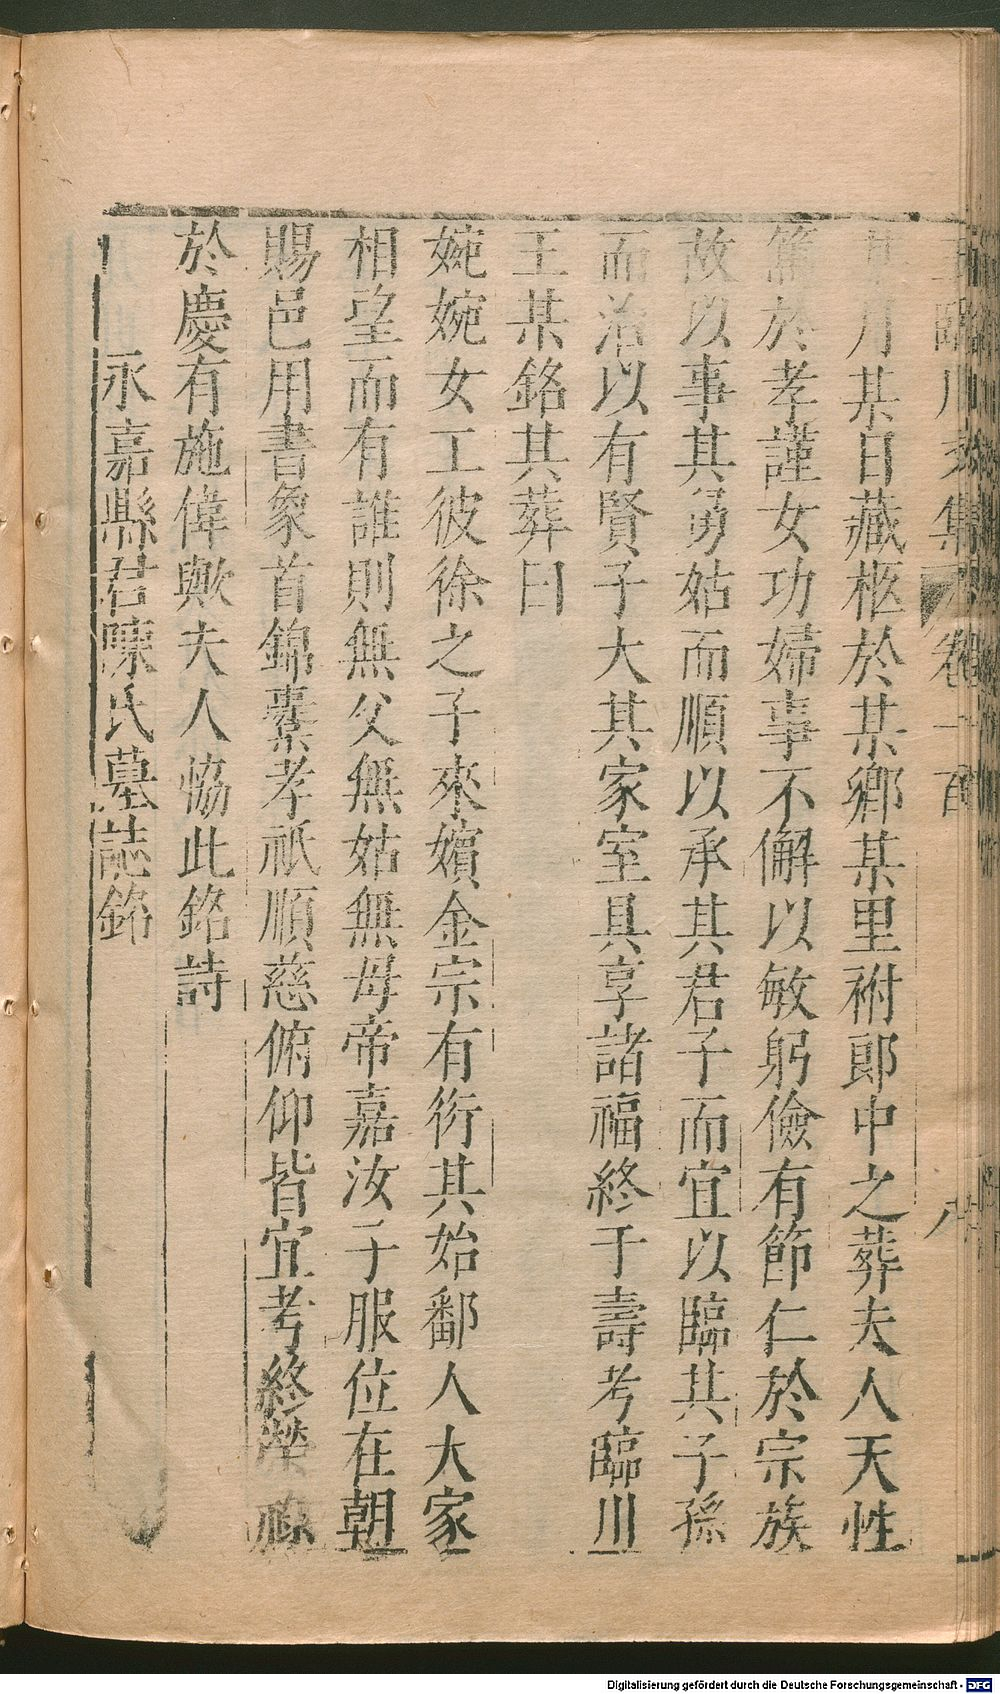 王臨川文集卷一百 八
月某日藏柩於某鄉某里祔郎中之葬夫人天性
篤於孝謹女功婦事不懈以敏躬儉有節仁於宗族
故以事其舅姑而順以承其君子而宜以臨其子孫
而治以有賢子大其家室具享諸福終于壽考臨川
王某銘其葬曰
婉婉女工彼徐之子來嬪金宗有衍其始鄱人大家
相望而有誰則無父無姑無母帝嘉汝子服位在朝
賜邑用書象首錦囊孝祇順慈俯仰皆宜考終榮祿
於慶有施偉歟夫人恊此銘詩
永嘉縣君陳氏墓誌銘
Digitalisierung gefördert durch die Deutsche Forschungsgemeinschaft - DFG